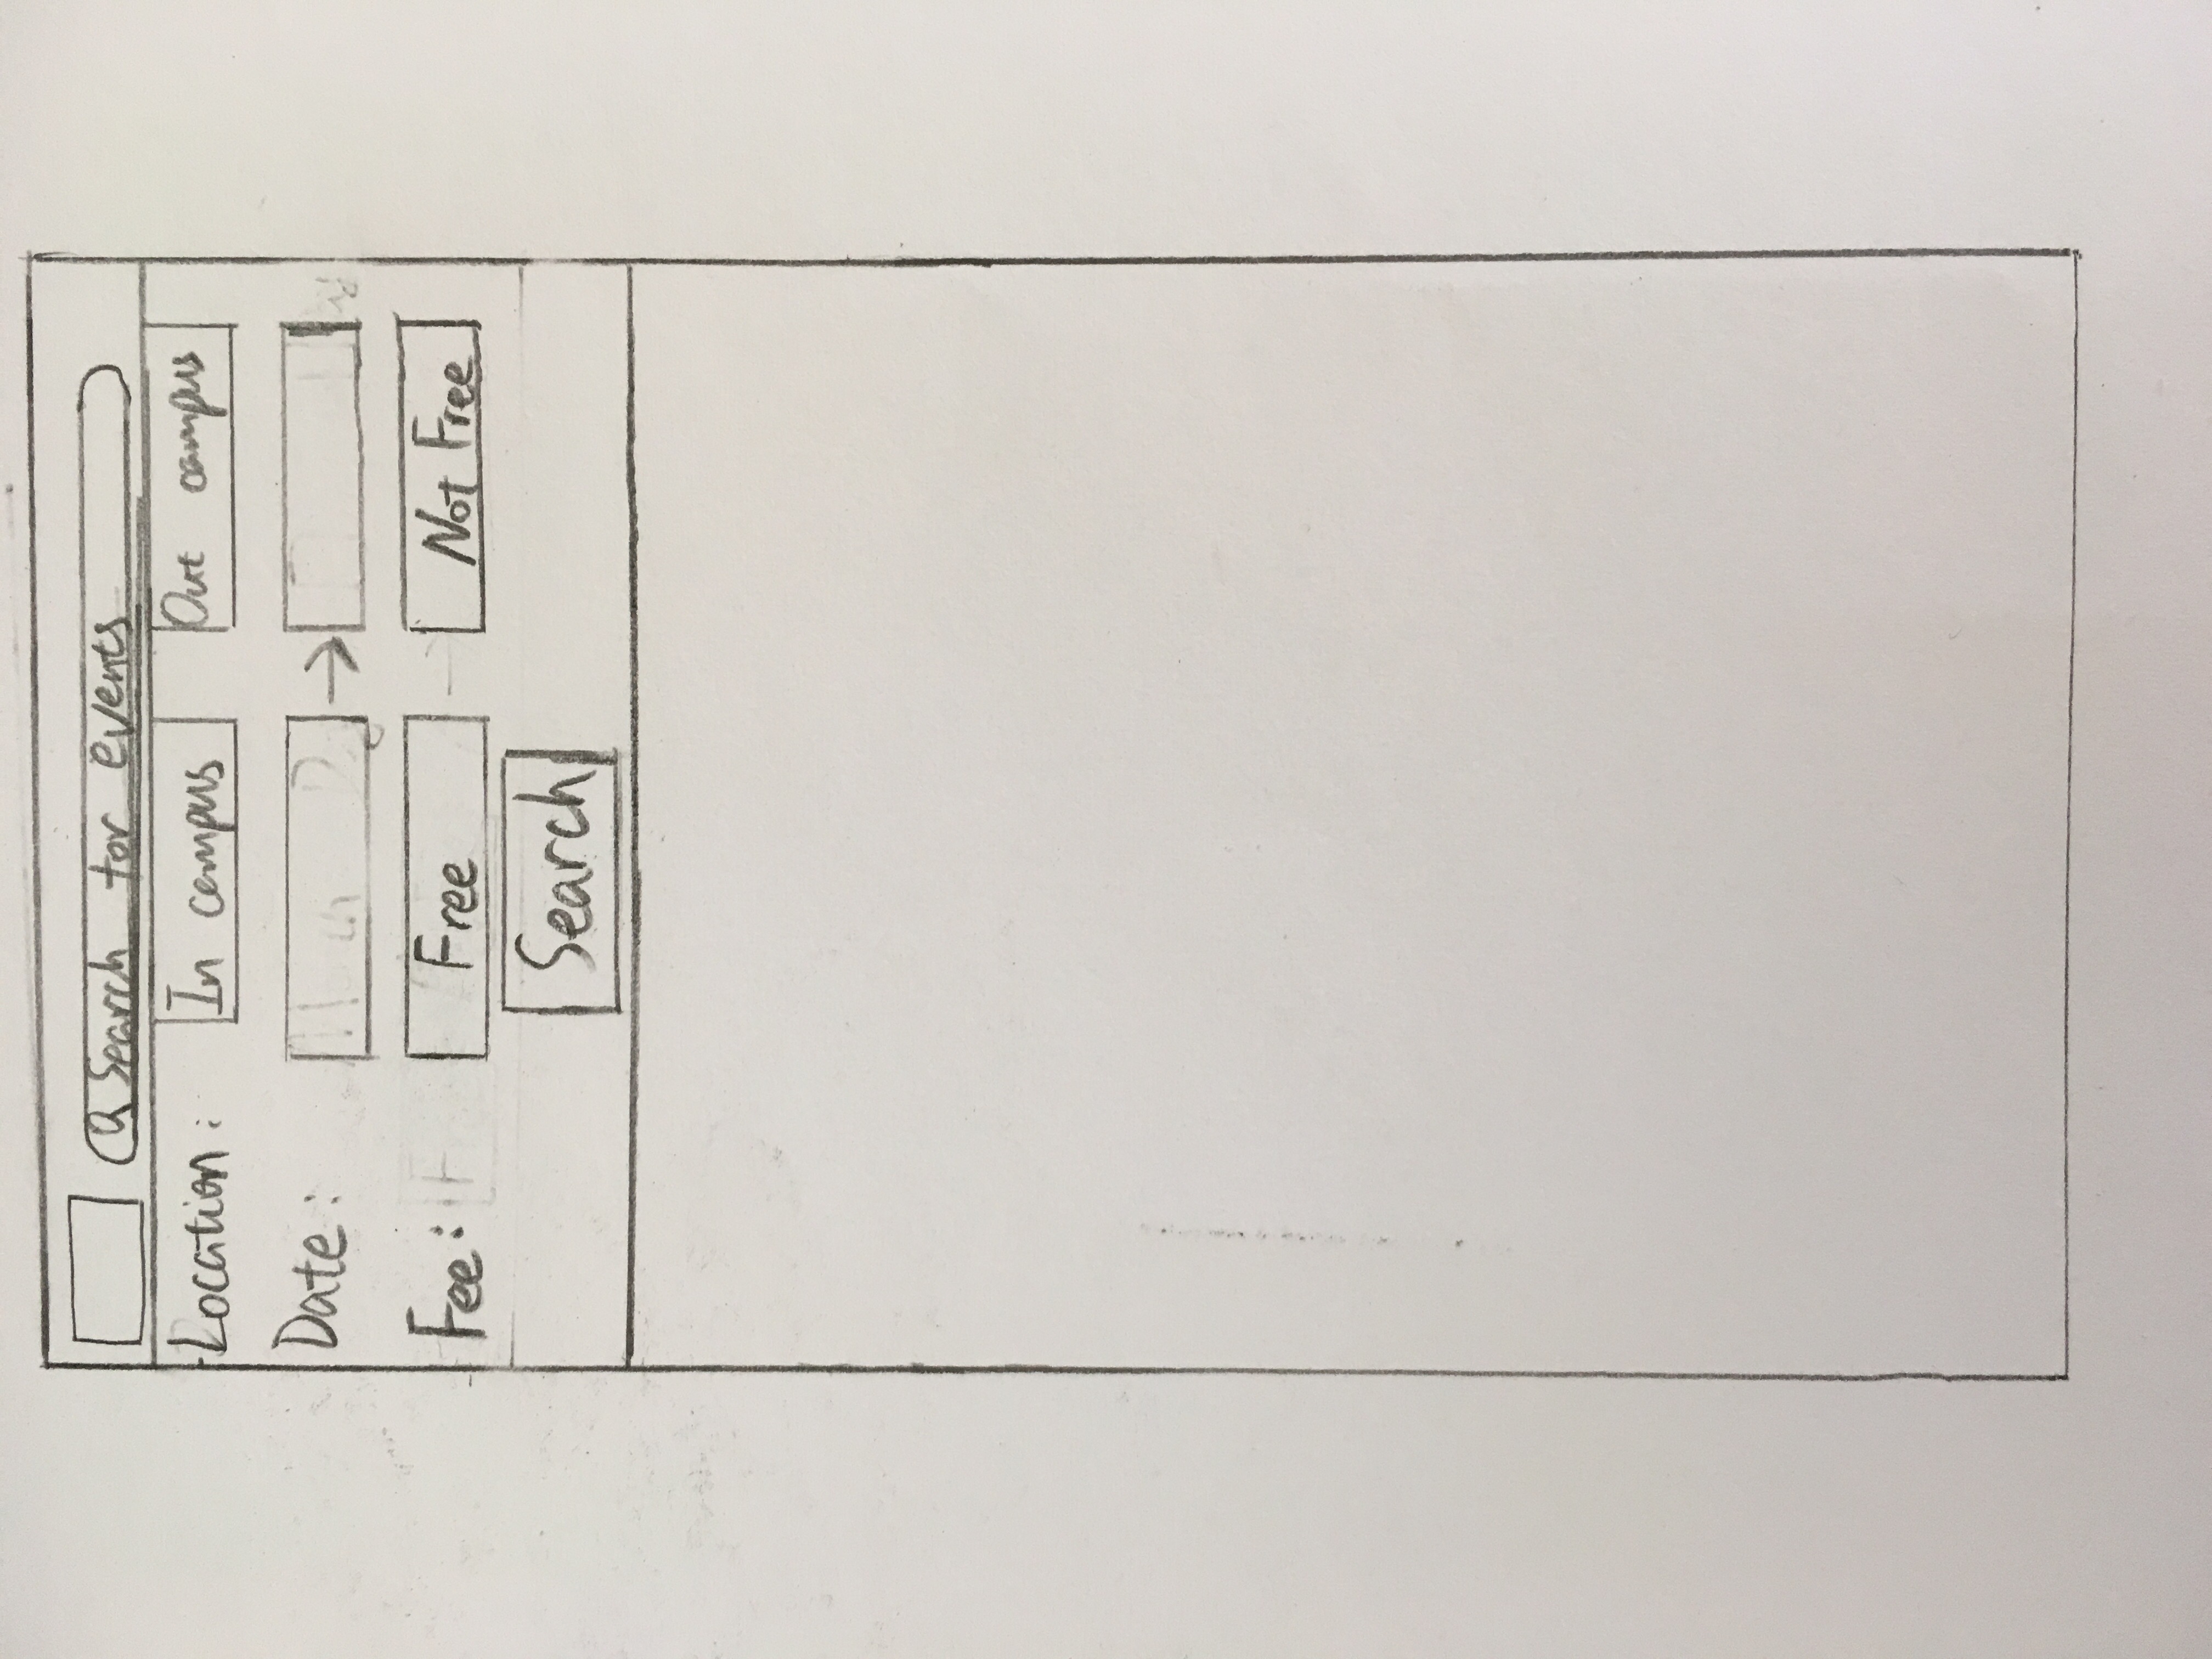 Search for events
Location: In campus Out campus
Date:
Fee: Free Not Free
Search